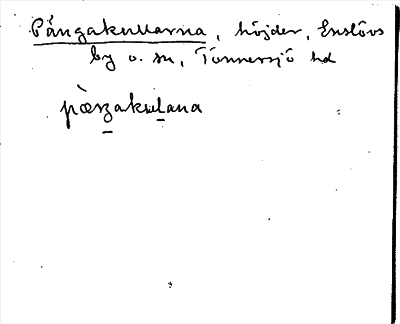 Pångakullarna, höjder, Enslövs
by o. sn, Tönnersjö hd
pæ̀ŋakuḷana